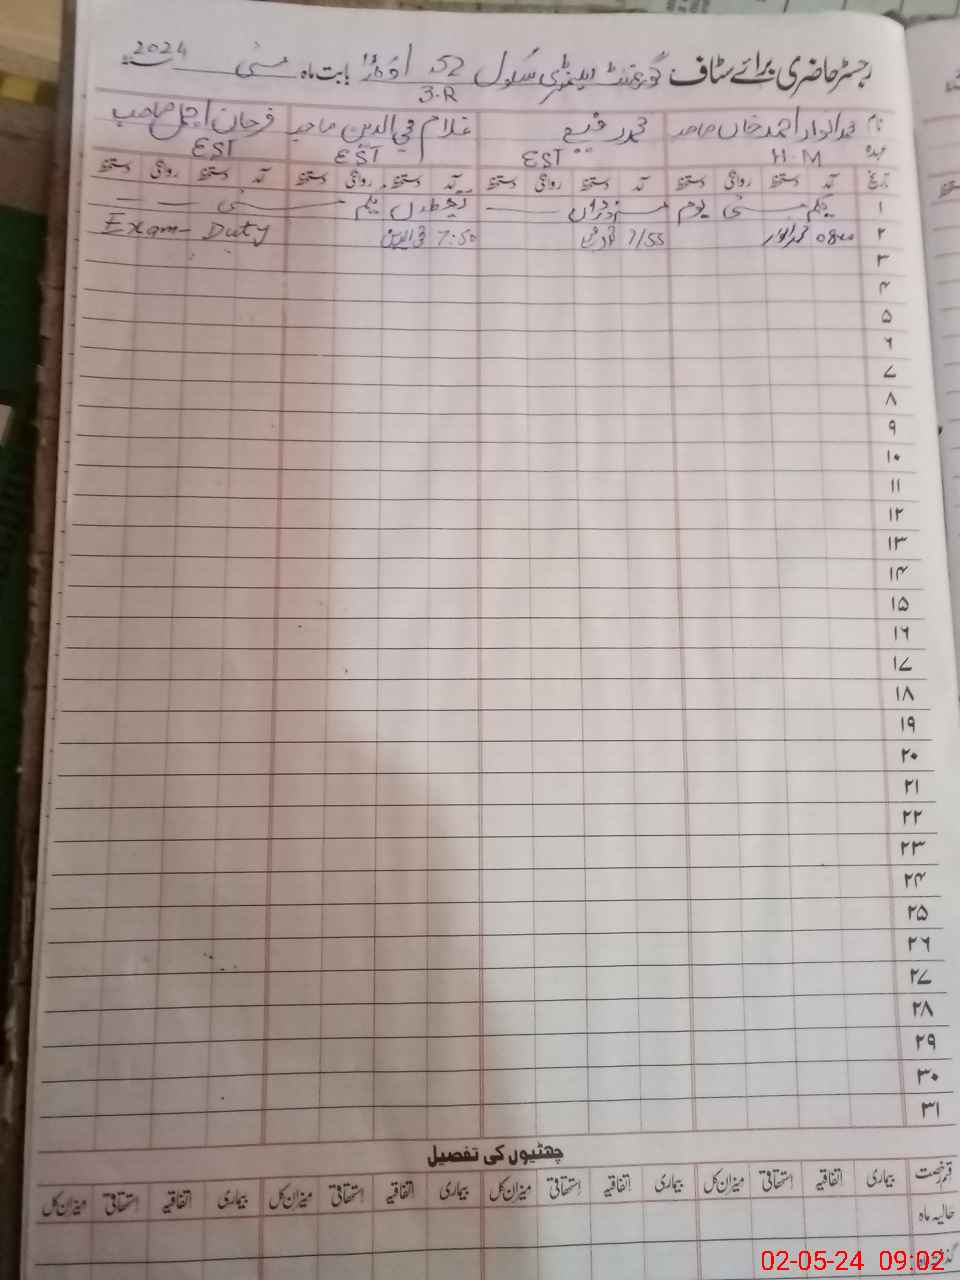 رجسٹر حاضری برائے سٹاف گورنمنٹ ایلیمنٹری سکول 52 بابت ماہ مئی 2024
3.R
نام محمد انوار احمد خاں صاحب محمد رفیع غلام محی الدین صاحب فرحان اجمل صاحب
عہدہ H.M EST EST EST
تاریخ آمد دستخط روانگی دستخط آمد دستخط روانگی دستخط آمد دستخط روانگی دستخط آمد دستخط روانگی دستخط
۱ یکم مئی یوم مزدوراں یکم مئی
۲ 0800 محمد انوار 7/55 محمد رفیع 7:50 محی الدین Exam- Duty
۳
۴
۵
۶
۷
۸
۹
۱۰
۱۱
۱۲
۱۳
۱۴
۱۵
۱۶
۱۷
۱۸
۱۹
۲۰
۲۱
۲۲
۲۳
۲۴
۲۵
۲۶
۲۷
۲۸
۲۹
۳۰
۳۱
چھٹیوں کی تفصیل
قسم رخصت بیماری اتفاقیہ استحقاقی میزان کل بیماری اتفاقیہ استحقاقی میزان کل بیماری اتفاقیہ استحقاقی میزان کل بیماری اتفاقیہ استحقاقی میزان کل
حالیہ ماہ
02-05-24 09:02